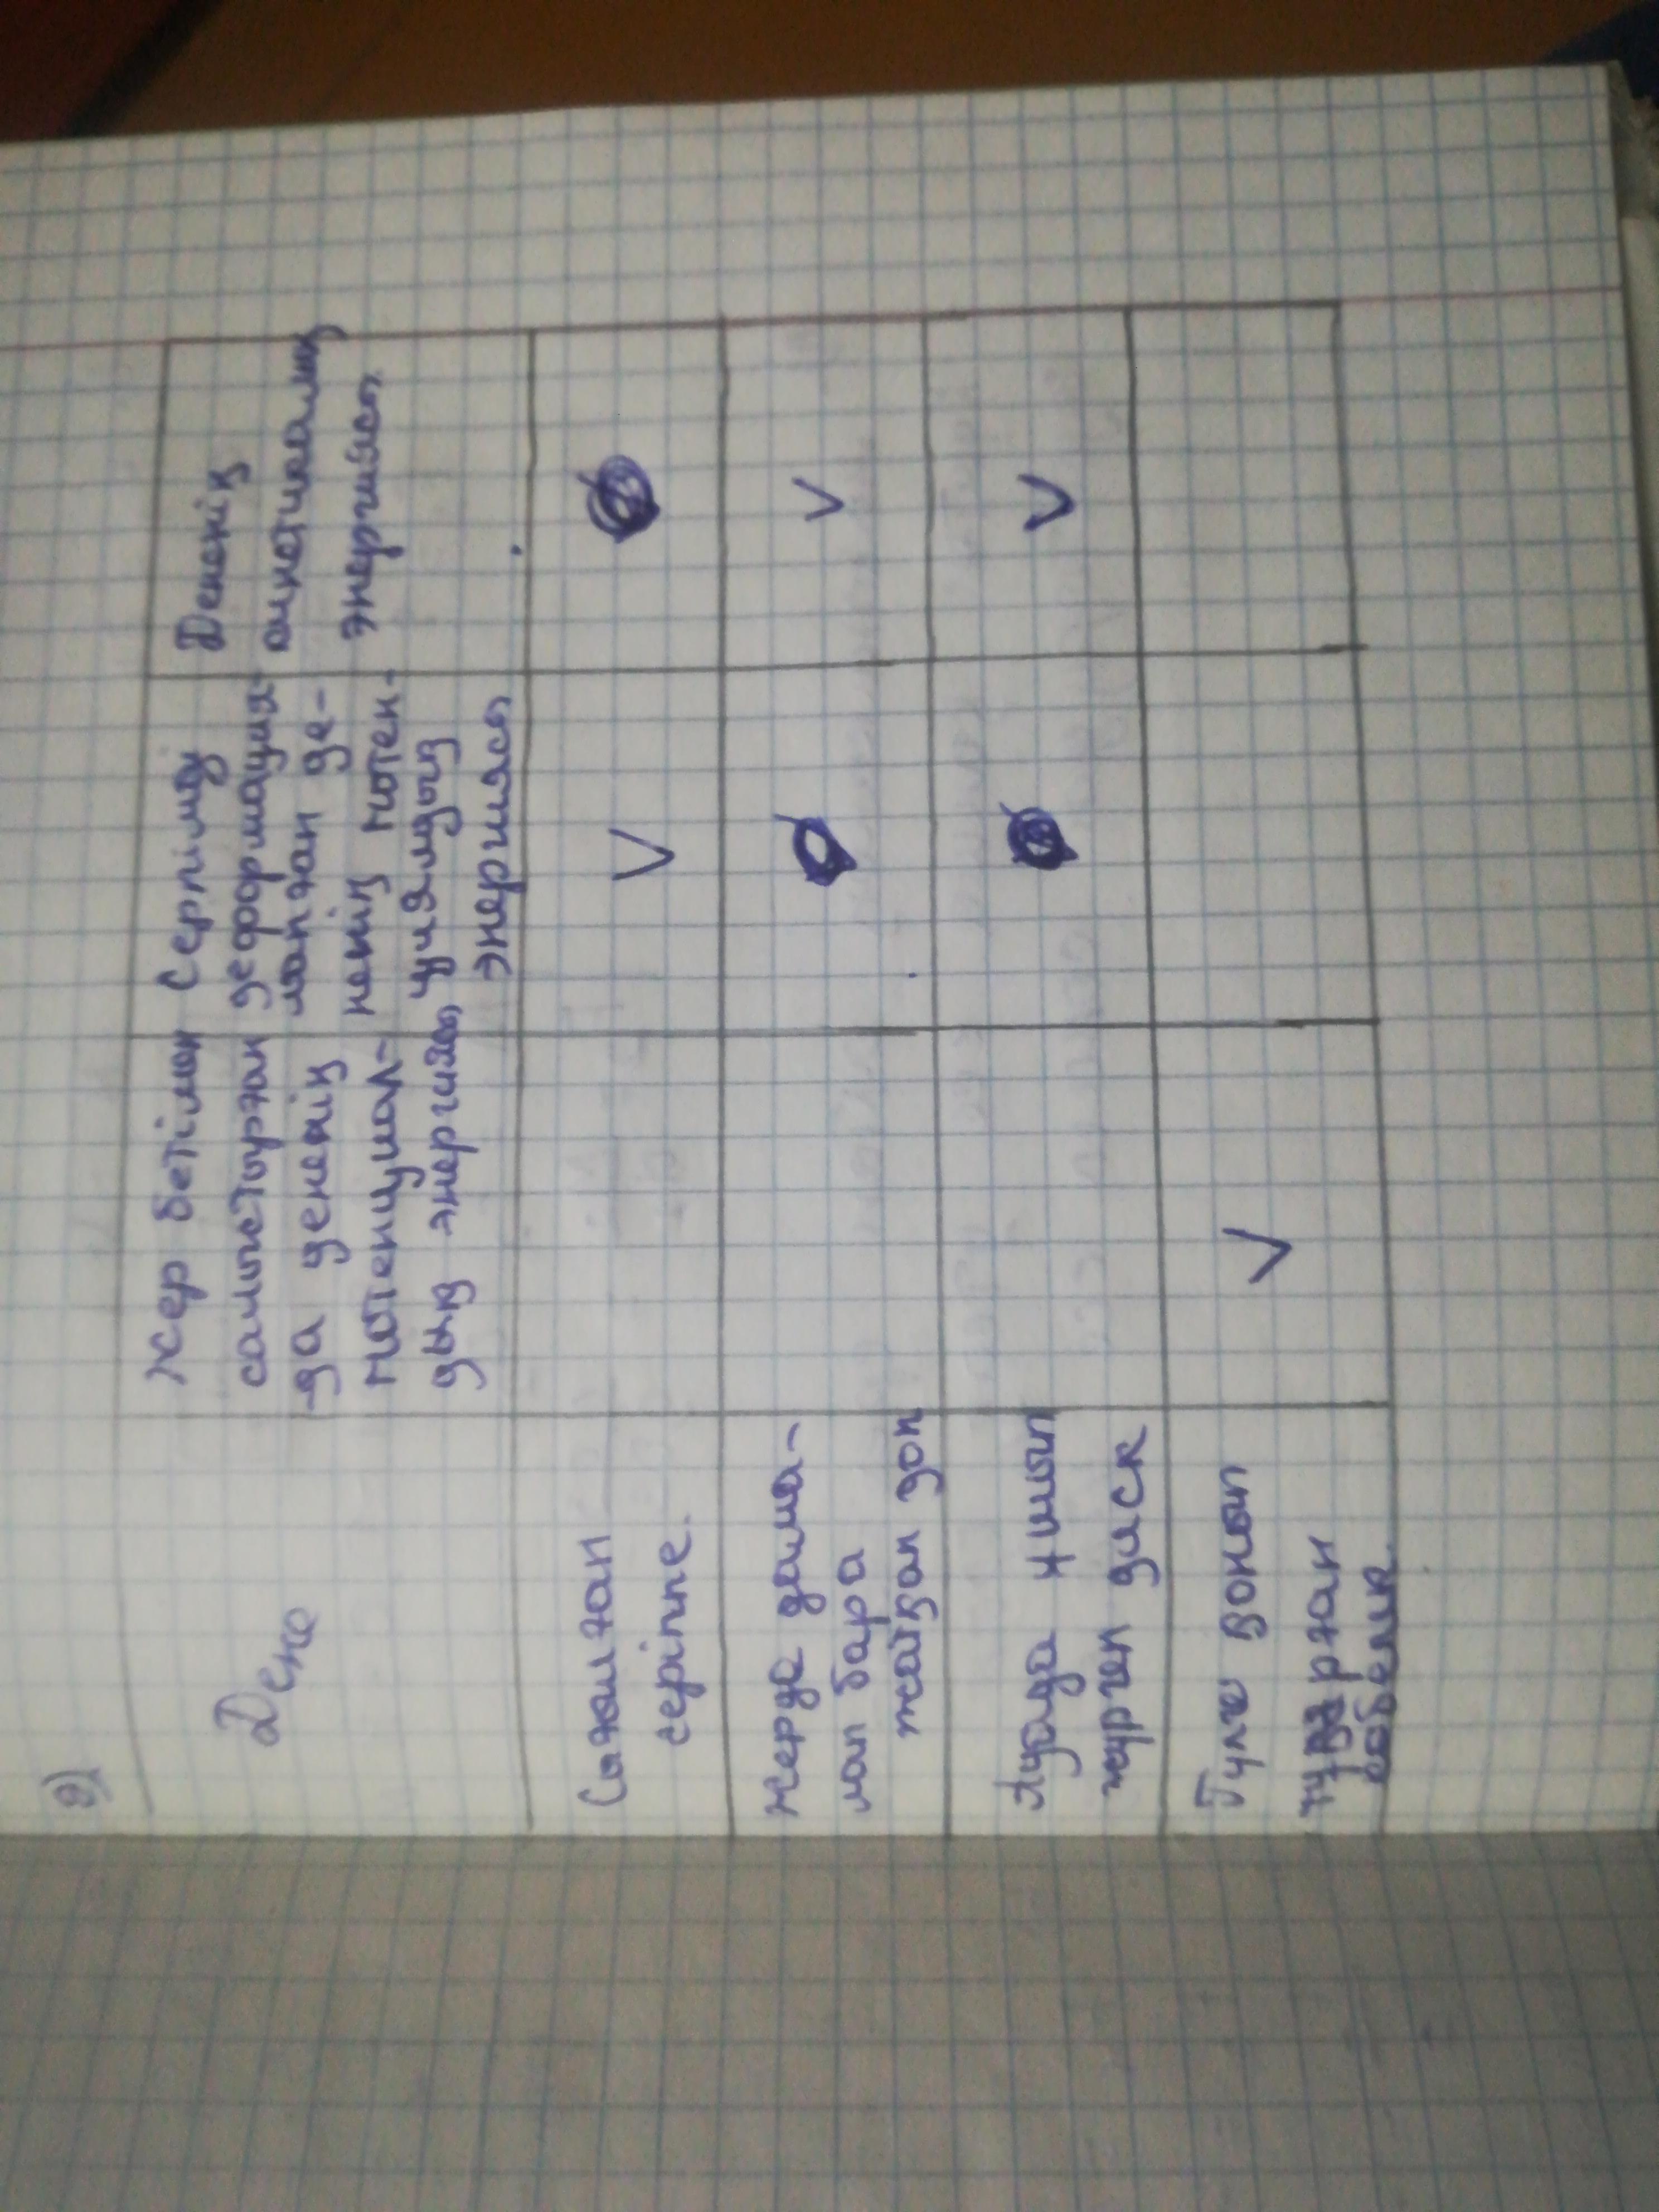 2)
Дене
Жер бетімен
салыстырған
-да дененің
потенциал-
дық энергиясы
Серпімді
деформация-
ланған де-
ненің потен-
циялдық
энергиясы
Дененің
кинетикалық
энергиясы
Сығылған
серіппе.
V
Жерде дома-
лап бара
жатқан доп
V
Ауада ұшып
жүрген диск
V
Гүлге қонып
тұрған
көбелек.
V